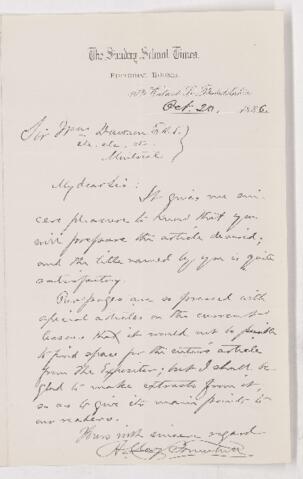 The Sunday School Times.
Editorial Rooms.
Walnut St. Philadelphia
Oct. 20, 1886.
Sir Wm. Dawson F.R.S.
etc. etc. etc.
Montreal
My dear Sir:
It gives me sin-
cere pleasure to know that you
will prepare the article desired;
and the title named by you is quite
satisfactory.
Our pages are so pressed with
special articles on the current
lessons that it would not be possible
to find space for the entire article
from the Expositor; but I shall be
glad to make extracts from it,
so as to give its main points to
our readers.
Yours with sincere regard
H. Clay Trumbull